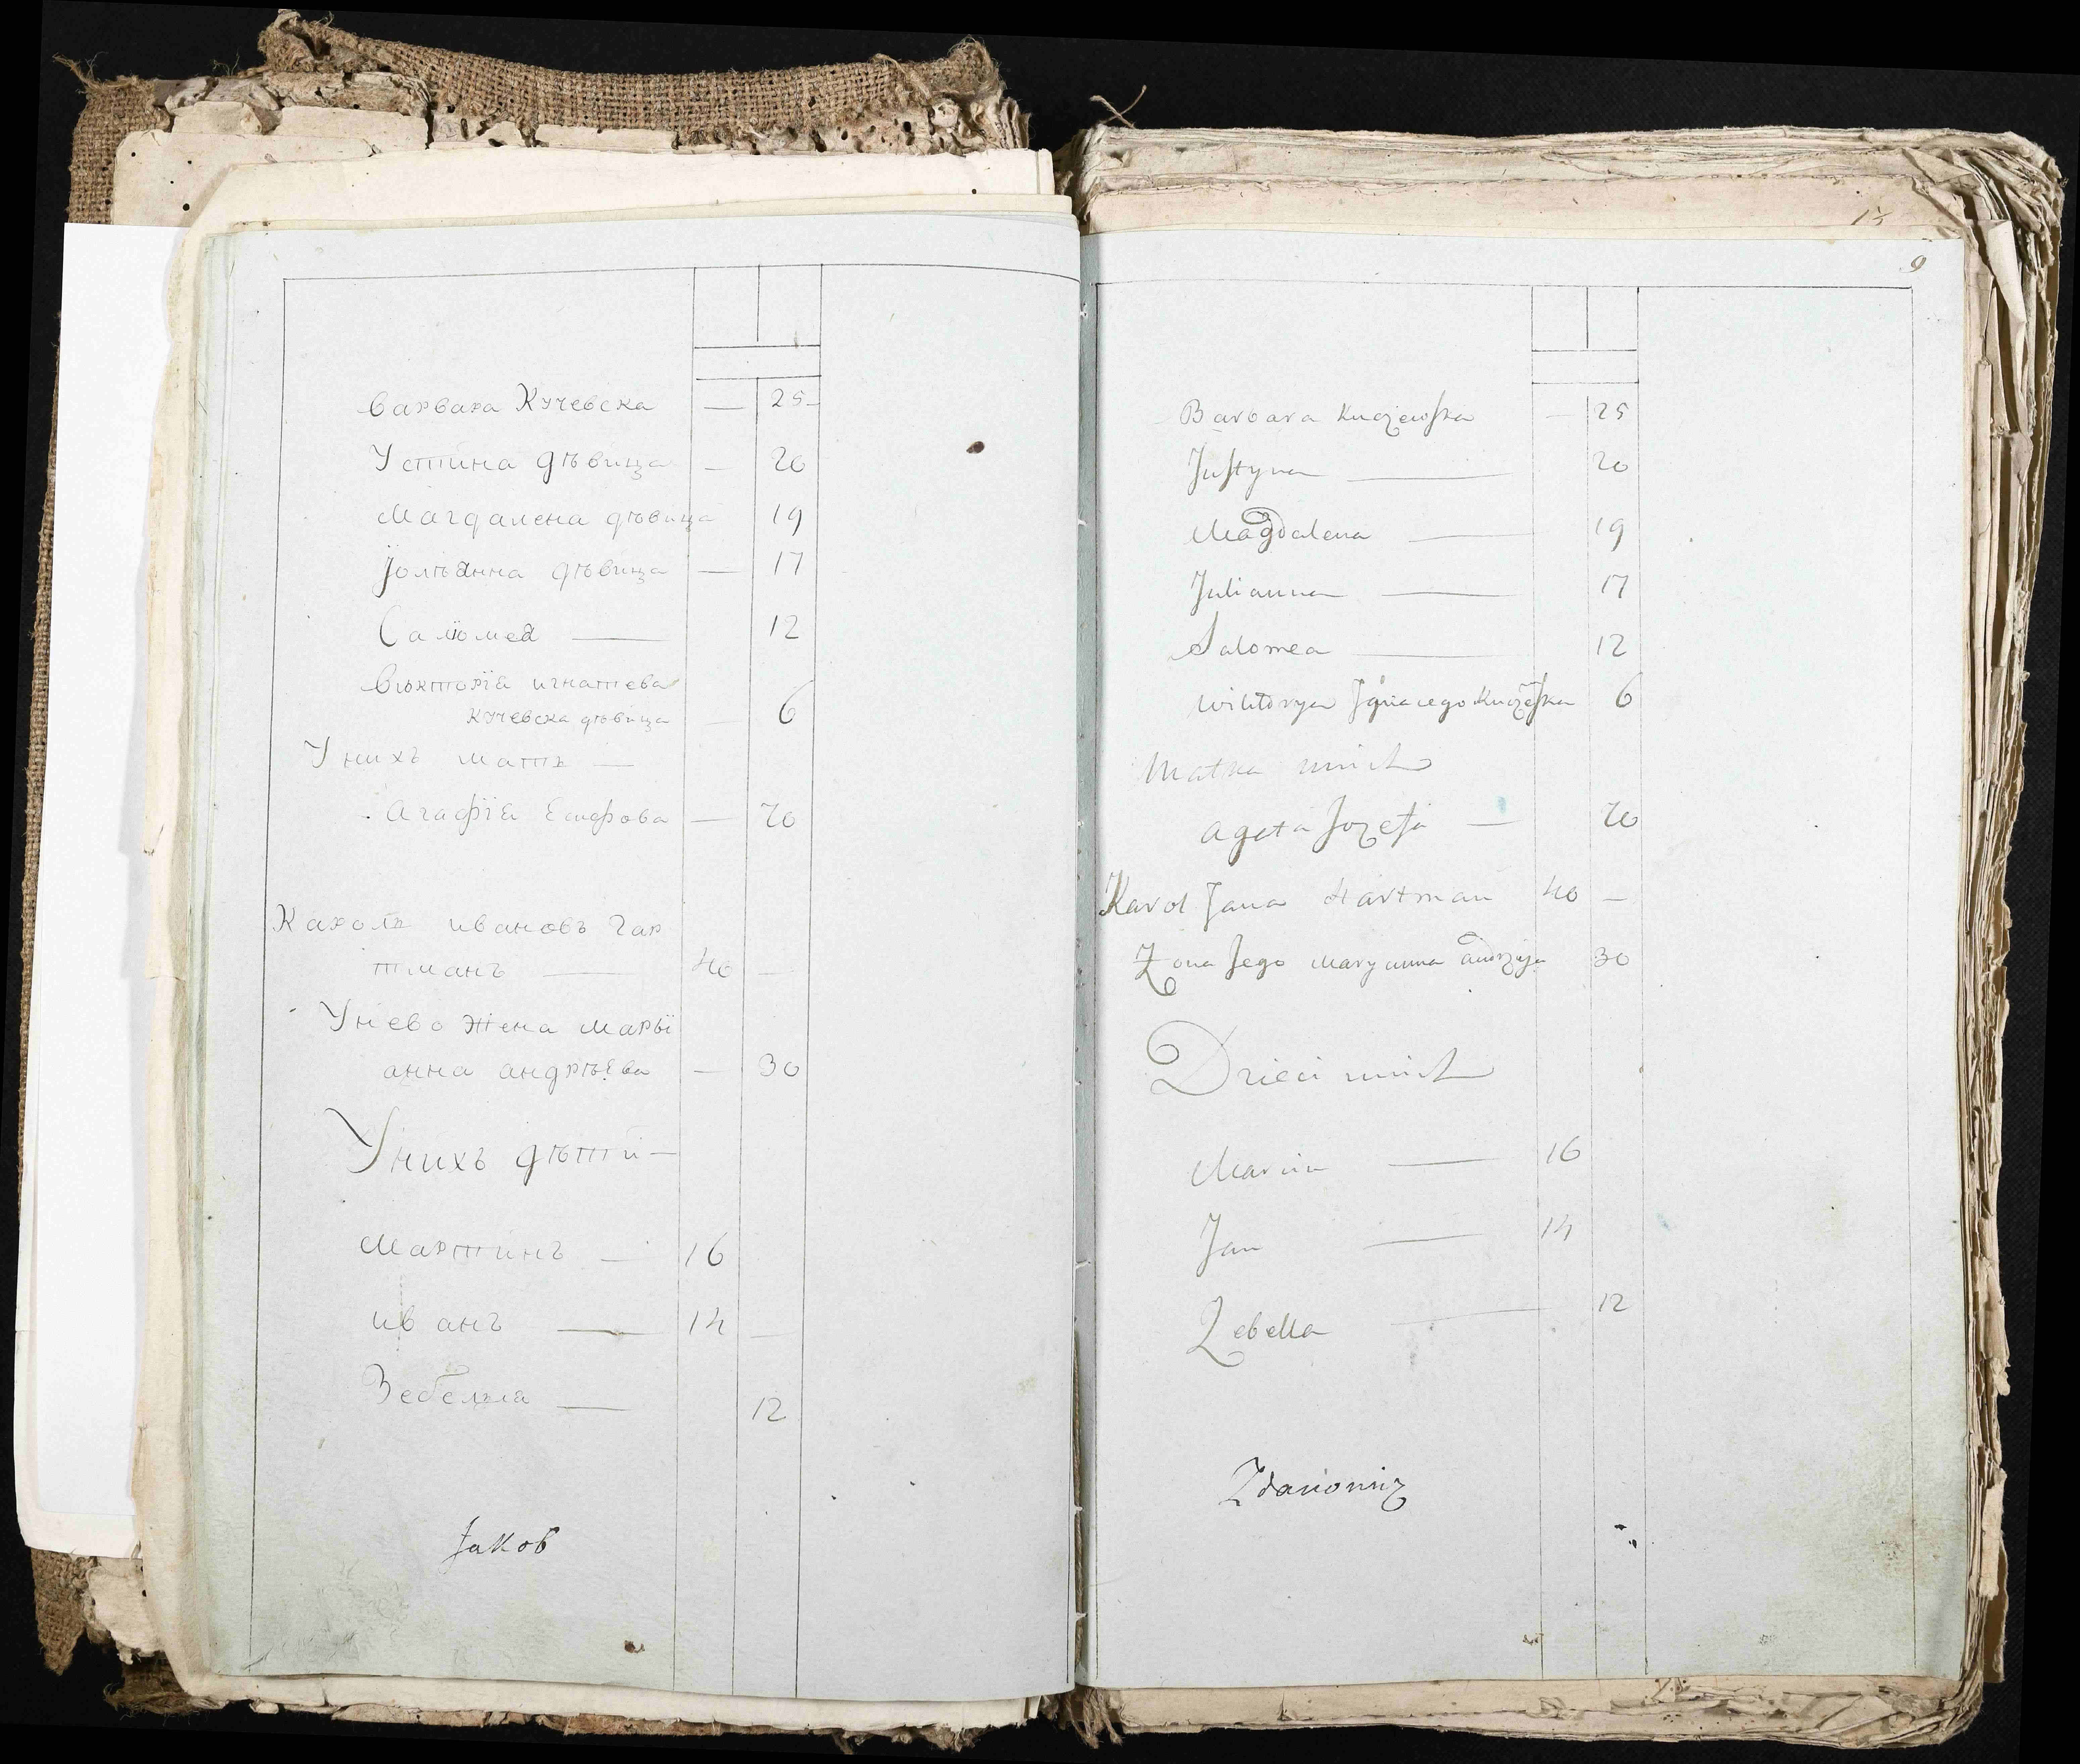 Варвара Кучевска — 25
Устина дѣвица — 20
Магдалена дѣвица 19
Юлѣанна дѣвица — 17
Саломеа — 12
Вѣкторіа игнатева
Кучевска дѣвица — 6
Унихъ мать —
Агафіа Есифова — 70
Кароль ивановъ Гар
тманъ — 40 —
Унево жена марьі
анна андрѣева — 30
Унихъ дѣти —
Мартинъ — 16
иванъ — 14 —
Зебелла — 12
Jakob
15
9
Barbara Kuczewska — 25
Justyna — 20
Magdalena — 19
Julianna — 17
Salomea — 12
Wiktorya Jgnacego Kuczewska 6
Matka unich
Agata Jozefa — 70
Karol Jana Hartman 40 —
Zona Jego Maryanna Andrzeja 30
Dzieci unich
Marcin — 16
Jan — 14
Zebella — 12
Zdanowicz